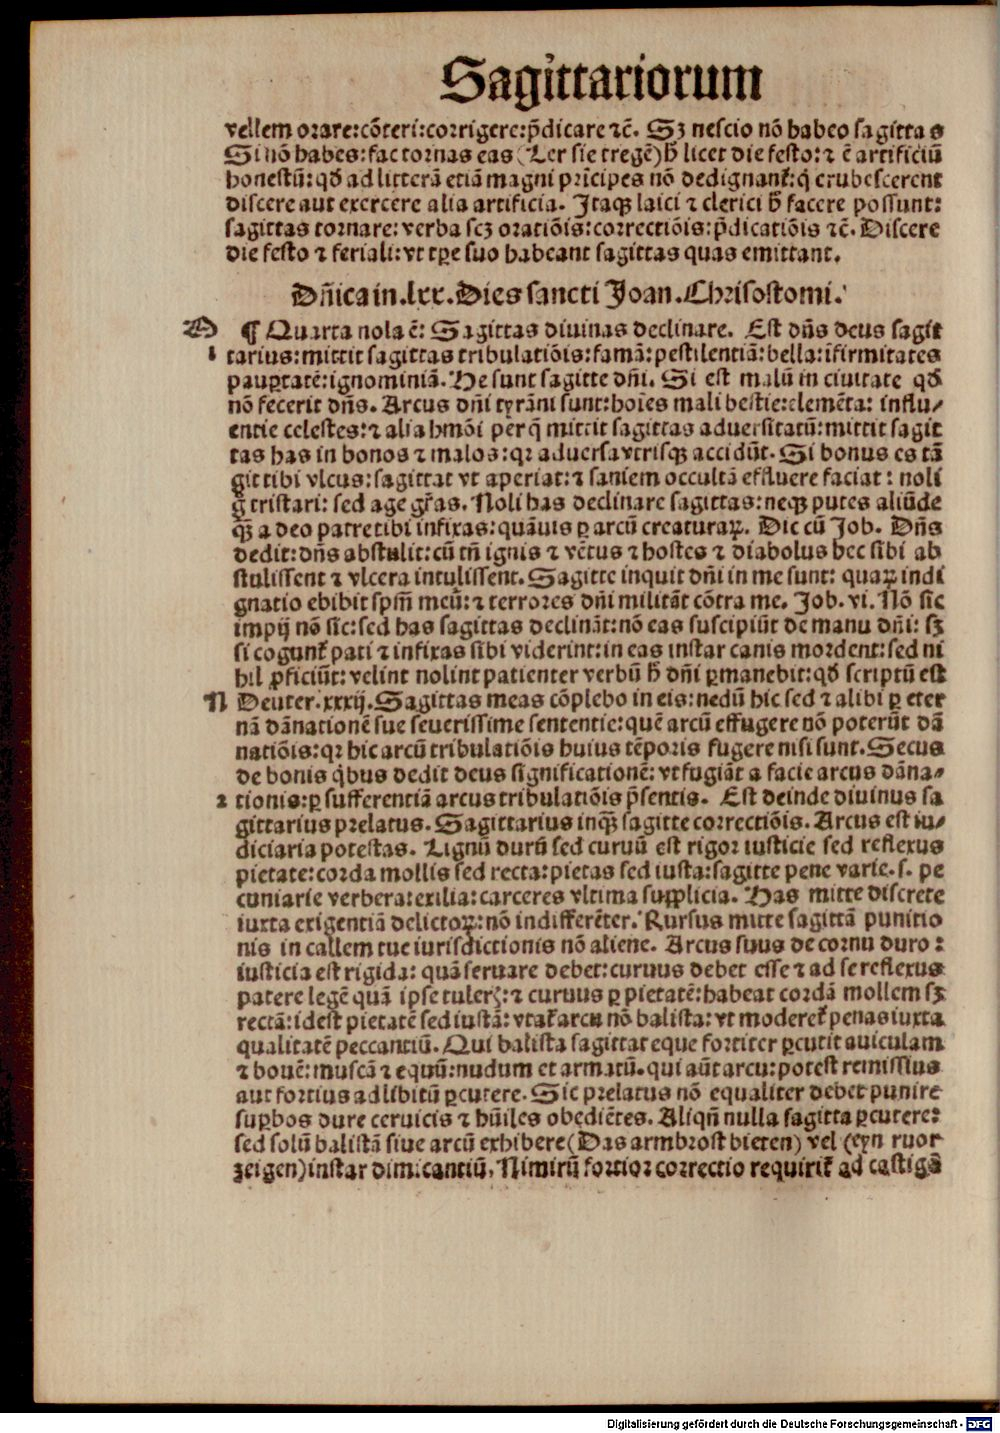 Sagittariorum
vellem orare:cōteri:corrigere:p̄dicare ⁊c̄. Sȝ nescio nō habeo sagittas
Si nō habes:fac tornas eas (Ler sie tregē) h̄ licet die festo:⁊ ē artificiū
honestū:qđ ad litterā etiā magni pricipes nō dedignant᷑:q̄ erubescerent
discere aut exercere alia artificia. Itaqȝ laici ⁊ clerici h̄ facere possunt:
sagittas tornare:verba scȝ oratiōis:correctiōis:p̄dicatiōis ⁊c̄. Discere
die festo ⁊ feriali:vt tp̄e suo habeant sagittas quas emittant.
Dn̄ica in.lxx.Dies sancti Joan.Chrisostomi.
¶ Quarta nola ē: Sagittas diuinas declinare. Est dn̄s deus sagit
1 tarius:mittit sagittas tribulatiōis:famā:pestilentiā:bella:īfirmitates
paup̱tatē:ignominiā. He sunt sagitte dn̄i. Si est malū in ciuitate qđ
nō fecerit dn̄s. Arcus dn̄i tyrāni sunt:hoīes mali bestie:elemēta: influ/
entie celestes:⁊ alia hmōi per q̄ mittit sagittas aduersitatū:mittit sagit
tas has in bonos ⁊ malos:qꝛ aduersa vtrisqȝ accidūt. Si bonus es tā
git tibi vlcus:sagittat vt aperiat:⁊ saniem occultā effluere faciat: noli
g̊ tristari: sed age gr̄as. Noli has declinare sagittas:neqȝ putes aliūde
qȝ̄ a deo patre tibi infixas:quāuis ꝑ arcū creaturaꝝ. Dic cū Job. Dn̄s
dedit:dn̄s abstulit:cū tn̄ ignis ⁊ vētus ⁊ hostes ⁊ diabolus hec sibi ab
stulissent ⁊ vlcera intulissent. Sagitte inquit dn̄i in me sunt: quaꝝ indi
gnatio ebibit spm̄ meū:⁊ terrores dn̄i militāt cōtra me. Job. vi. Nō sic
impij nō sic:sed has sagittas declināt:nō eas suscipiūt de manu dn̄i: sȝ
si cogunt᷑ pati ⁊ infixas sibi viderint:in eas instar canis mordent:sed ni
hil ꝓficiūt: velint nolint patienter verbū h̄ dn̄i ꝑmanebit:qđ scriptū est
N Deuter.xxxij. Sagittas meas cōplebo in eis:nedū hic sed ⁊ alibi ꝑ eter
nā dānationē sue seuerissime sententie:quē arcū effugere nō poterūt dā
natiōis:qꝛ hic arcū tribulatiōis huius tēporis fugere nisi sunt. Secus
de bonis q̇bus dedit deus significationē:vt fugiāt a facie arcus dāna/
2 tionis:ꝑ sufferentiā arcus tribulatiōis p̄sentis. Est deinde diuinus sa
gittarius prelatus. Sagittarius inqȝ̄ sagitte correctiōis. Arcus est iu/
diciaria potestas. Lignū durū sed curuū est rigor iusticie sed reflexus
pietate:corda mollis sed recta:pietas sed iusta:sagitte pene varie.s. pe
cuniarie verbera:exilia:carceres vltima supplicia. Has mitte discrete
iuxta exigentiā delictoꝝ:nō indifferēter. Rursus mitte sagittā punitio
nis in callem tue iurisdictionis nō aliene. Arcus suus de cornu duro:
iusticia est rigida: quā seruare debet:curuus debet esse ⁊ ad se reflexus
patere legē quā ipse tulerȝ:⁊ curuus ꝑ pietatē:habeat cordā mollem sȝ
rectā:idest pietatē sed iustā:vtat᷑ arcu nō balista:vt moderet᷑ penas iuxta
qualitatē peccantiū. Qui balista sagittat eque fortiter ꝑcutit auiculam
⁊ bouē:muscā ⁊ equū:nudum et armatū. qui aūt arcu:potest remissius
aut fortius ad libitū ꝑcutere. Sic prelatus nō equaliter debet punire
suꝑbos dure ceruicis ⁊ hūiles obediētes. Aliqn̄ nulla sagitta ꝑcutere:
sed solū balistā siue arcū exhibere (Das armbrost bieten) vel (eyn ruor
zeigen) instar dimicantiū. Nimirū fortior correctio requirit᷑ ad castigā
Digitalisierung gefördert durch die Deutsche Forschungsgemeinschaft - DFG